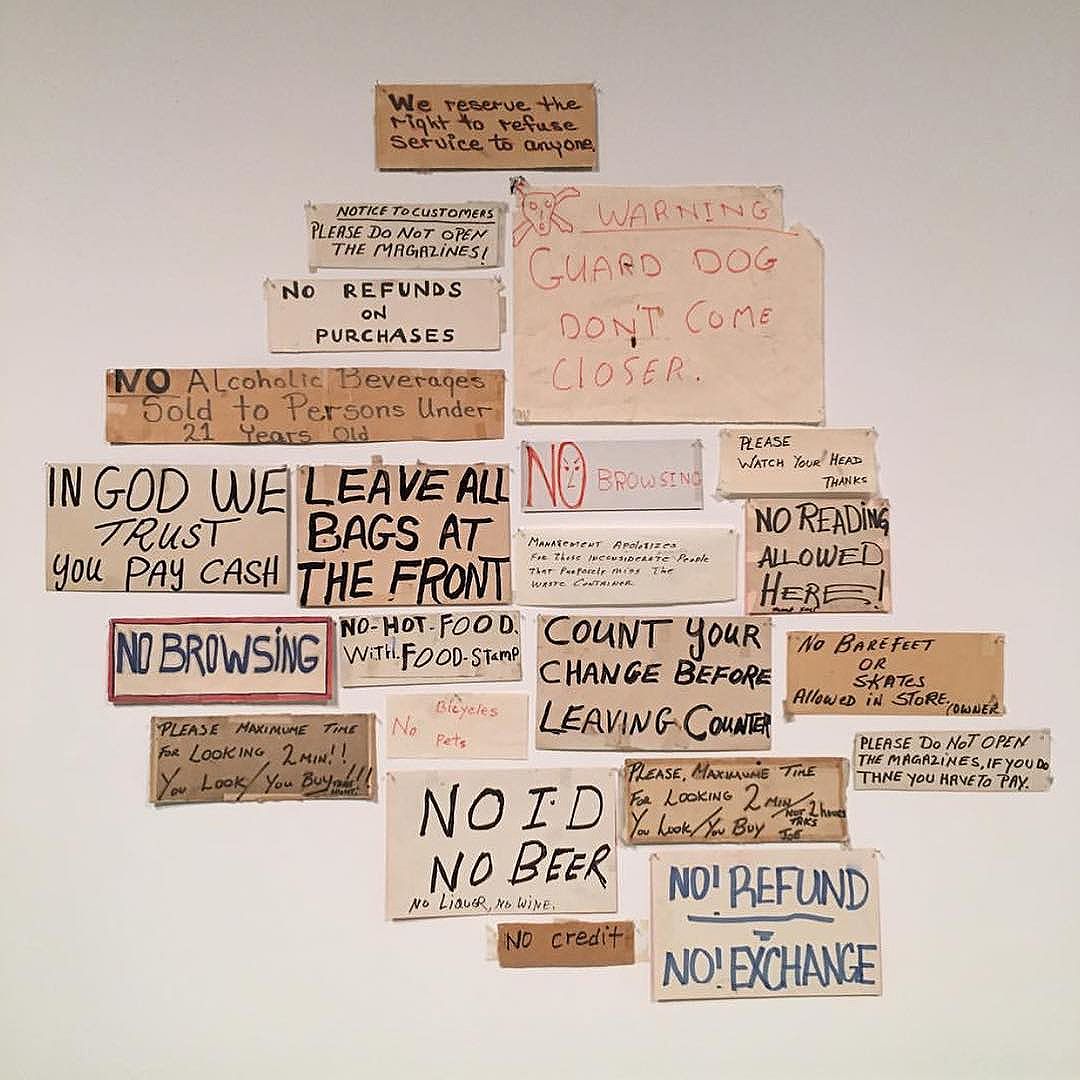 We reserve the
right to refuse
service to anyone.
NOTICE TO CUSTOMERS
PLEASE DO NOT OPEN
THE MAGAZINES!
WARNING
GUARD DOG
DON'T COME
CLOSER.
NO REFUNDS
ON
PURCHASES
NO Alcoholic Beverages
Sold to Persons Under
21 Years Old
NO BROWSING
PLEASE
WATCH YOUR HEAD
THANKS
IN GOD WE
TRUST
YOU PAY CASH
LEAVE ALL
BAGS AT
THE FRONT
MANAGEMENT APOLOGIZES
FOR THOSE INCONSIDERATE PEOPLE
THAT PURPOSELY MISS THE
WASTE CONTAINER
NO READING
ALLOWED
HERE!
NO BROWSING
NO-HOT-FOOD.
WITH.FOOD-STAMP
COUNT YOUR
CHANGE BEFORE
LEAVING COUNTER
NO BAREFEET
OR
SKATES
ALLOWED IN STORE.
(OWNER
Bicycles
No
Pets
PLEASE MAXIMUME TIME
FOR LOOKING 2 MIN!!
YOU LOOK/YOU BUY
PLEASE DO NOT OPEN
THE MAGAZINES, IF YOU DO
THNE YOU HAVE TO PAY.
PLEASE, MAXIMUME TIME
FOR LOOKING 2 MIN/NOT 2 hours
YOU LOOK/YOU BUY
JOE
NO I.D
NO BEER
NO LIQUOR, NO WINE.
NO credit
NO! REFUND
NO! EXCHANGE